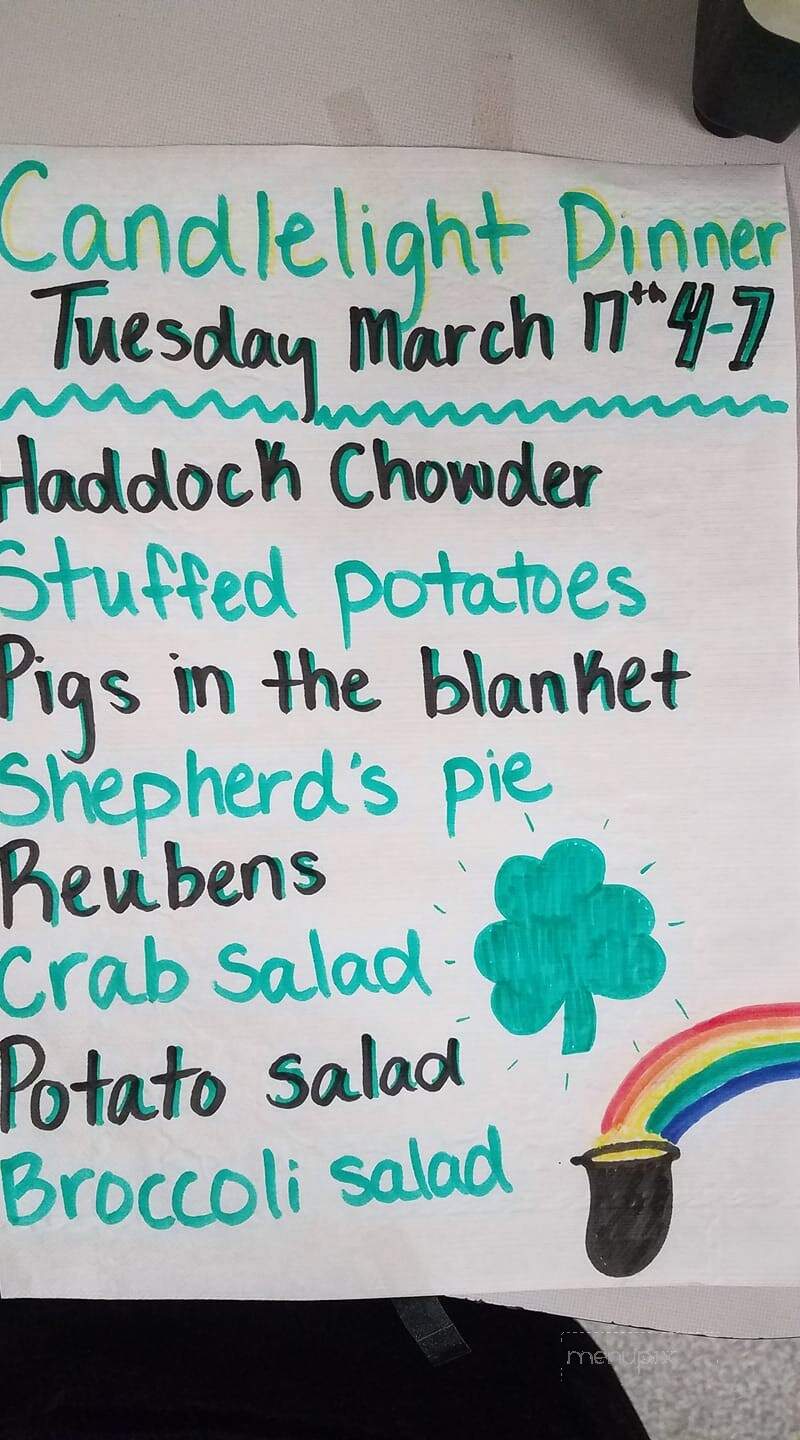 Candlelight Dinner
Tuesday March 17th 4-7
Haddock Chowder
Stuffed potatoes
Pigs in the blanket
Shepherd's pie
Reubens
Crab salad
Potato salad
Broccoli salad
menupix